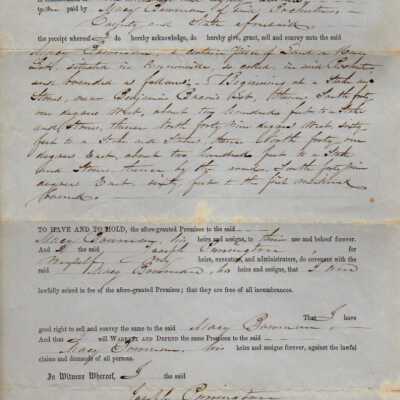 paid by Macy Bowman of
County and State aforesaid
the receipt whereof I do hereby acknowledge, do hereby give, grant, sell and convey unto the said
Macy Bowman, a certain Piece of Land a House
Lot, situated in
and bounded as follows. Beginning at a Stake and
Stone, near Benjamin lot, thence South forty
one degrees West, about two hundred feet to a Stake
and Stone, thence North forty five degrees West, sixty
feet to a Stake and Stone, thence North forty one
degrees East, about two hundred feet to a Stake
and Stone, thence by the South forty five
degrees East, sixty feet to the first mentioned
bound.
TO HAVE AND TO HOLD, the afore-granted Premises to the said
Macy Bowman, his heirs and assigns, to their use and behoof forever.
And I the said Joseph for
Myself & my heirs, executors, and administrators, do covenant with the
said Macy Bowman, his heirs and assigns, that I am
lawfully seized in fee of the afore-granted Premises; that they are free of all incumbrances.
That I have
good right to sell and convey the same to the said Macy Bowman
And that will WARRANT AND DEFEND the same Premises to the said
Macy Bowman, his heirs and assigns forever, against the lawful
claims and demands of all persons.
In Witness Whereof, I the said
Joseph